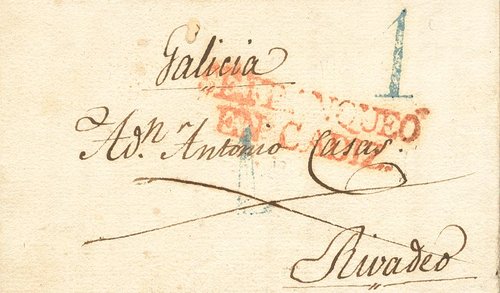 Galicia
1
SE FRANQUEO
EN CADIZ
A Dn. Antonio Casas.
1
Rivadeo